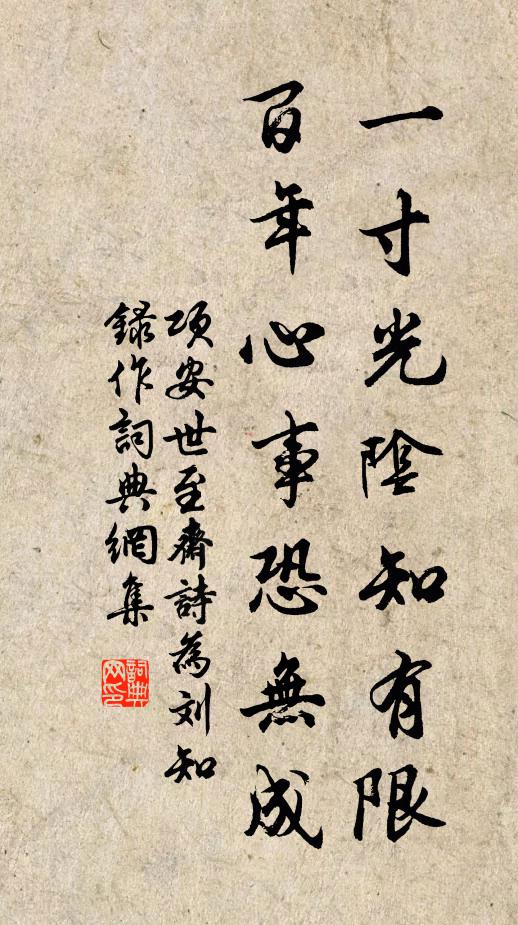 一寸光陰知有限
百年心事恐無成
項安世至齋詩為刘知
録作詞典網集
詞典网印